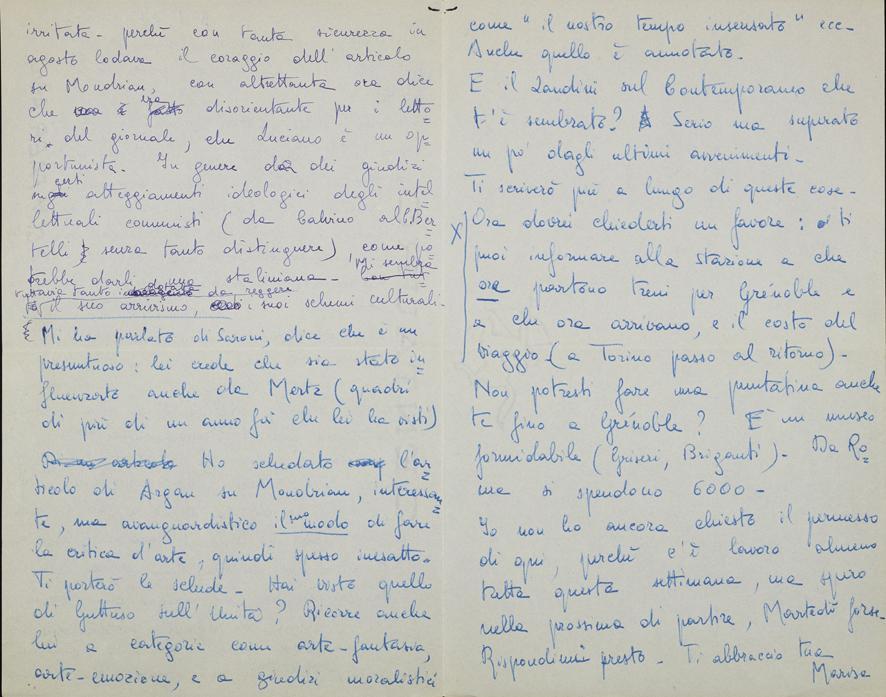 irritata - perchè con tanta sicurezza in
agosto lodava il coraggio dell'articolo
su Mondrian, con altrettanta ora dice
che era disorientante per i letto=
ri del giornale, che Luciano è un op=
portunista. In genere dà dei giudizi
su certi atteggiamenti ideologici degli intel=
lettuali comunisti (da Calvino al Ber=
telli senza tanto distinguere), come po=
trebbe darli una staliniana - Mi sembra
tuttavia tanto da reggere
il suo arrivismo, i suoi schemi culturali -
Mi ha parlato di Saroni, dice che è un
presuntuoso: lei crede che sia stato in=
fluenzato anche da Mertz (quadri
di più di un anno fa che lei ha visti)
Ho schedato l'ar=
ticolo di Argan su Mondrian, interessan=
te, ma avanguardistico il suo modo di fare
la critica d'arte, quindi spesso inesatto.
Ti porterò le schede - Hai visto quello
di Guttuso sull'Unità? Ricorre anche
lui a categorie come arte-fantasia,
arte-emozione, e a giudizi moralistici
come "il nostro tempo insensato" ecc -
Anche quello è annotato.
E il Landini sul Contemporaneo che
t'è sembrato? Serio ma superato
un po' dagli ultimi avvenimenti -
Ti scriverò più a lungo di queste cose -
X Ora dovrei chiederti un favore: ti
puoi informare alla stazione a che
ora partono treni per Grénoble e
a che ora arrivano, e il costo del
viaggio - (a Torino passo al ritorno) -
Non potresti fare una puntatina anche
te fino a Grénoble? E' un museo
formidabile (Griseri, Briganti) - Da Ro=
ma si spendono 6000 -
Io non ho ancora chiesto il permesso
di qui, perchè c'è lavoro almeno
tutta questa settimana, ma spero
nella prossima di partire, Martedì forse -
Rispondimi presto - Ti abbraccio tua
Marisa